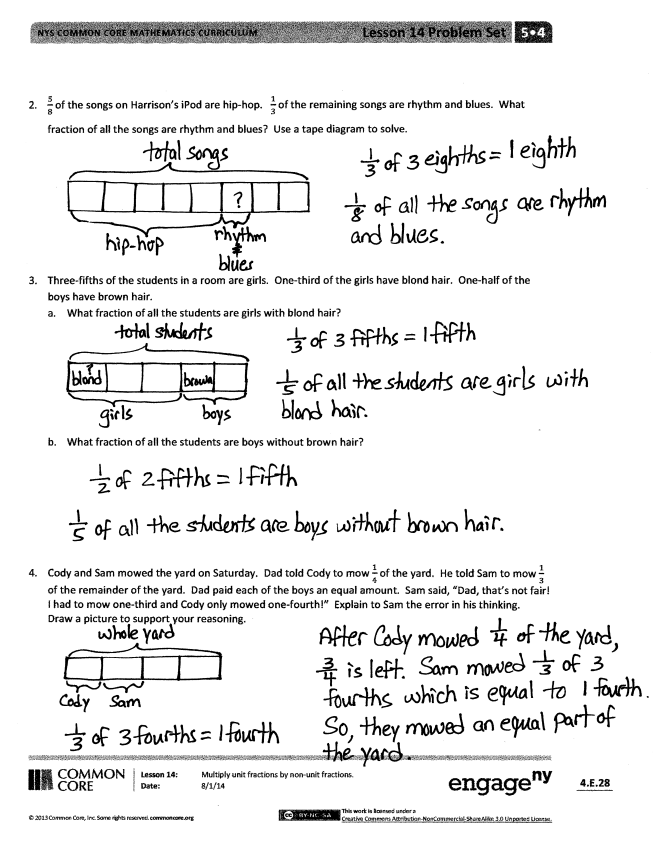 NYS COMMON CORE MATHEMATICS CURRICULUM Lesson 14 Problem Set 5•4
2. 5/8 of the songs on Harrison's iPod are hip-hop. 1/3 of the remaining songs are rhythm and blues. What
fraction of all the songs are rhythm and blues? Use a tape diagram to solve.
total songs
?
hip-hop
rhythm
+
blues
1/3 of 3 eighths = 1 eighth
1/8 of all the songs are rhythm
and blues.
3. Three-fifths of the students in a room are girls. One-third of the girls have blond hair. One-half of the
boys have brown hair.
a. What fraction of all the students are girls with blond hair?
total students
?
blond
brown
girls
boys
1/3 of 3 fifths = 1 fifth
1/5 of all the students are girls with
blond hair.
b. What fraction of all the students are boys without brown hair?
1/2 of 2 fifths = 1 fifth
1/5 of all the students are boys without brown hair.
4. Cody and Sam mowed the yard on Saturday. Dad told Cody to mow 1/4 of the yard. He told Sam to mow 1/3
of the remainder of the yard. Dad paid each of the boys an equal amount. Sam said, "Dad, that's not fair!
I had to mow one-third and Cody only mowed one-fourth!" Explain to Sam the error in his thinking.
Draw a picture to support your reasoning.
whole yard
Cody Sam
1/3 of 3 fourths = 1 fourth
After Cody mowed 1/4 of the yard,
3/4 is left. Sam mowed 1/3 of 3
fourths which is equal to 1 fourth.
So, they mowed an equal part of
the yard.
COMMON
CORE
Lesson 14: Multiply unit fractions by non-unit fractions.
Date: 8/1/14
engage ny
4.E.28
© 2013 Common Core, Inc. Some rights reserved. commoncore.org
cc BY-NC-SA
This work is licensed under a
Creative Commons Attribution-NonCommercial-ShareAlike 3.0 Unported License.